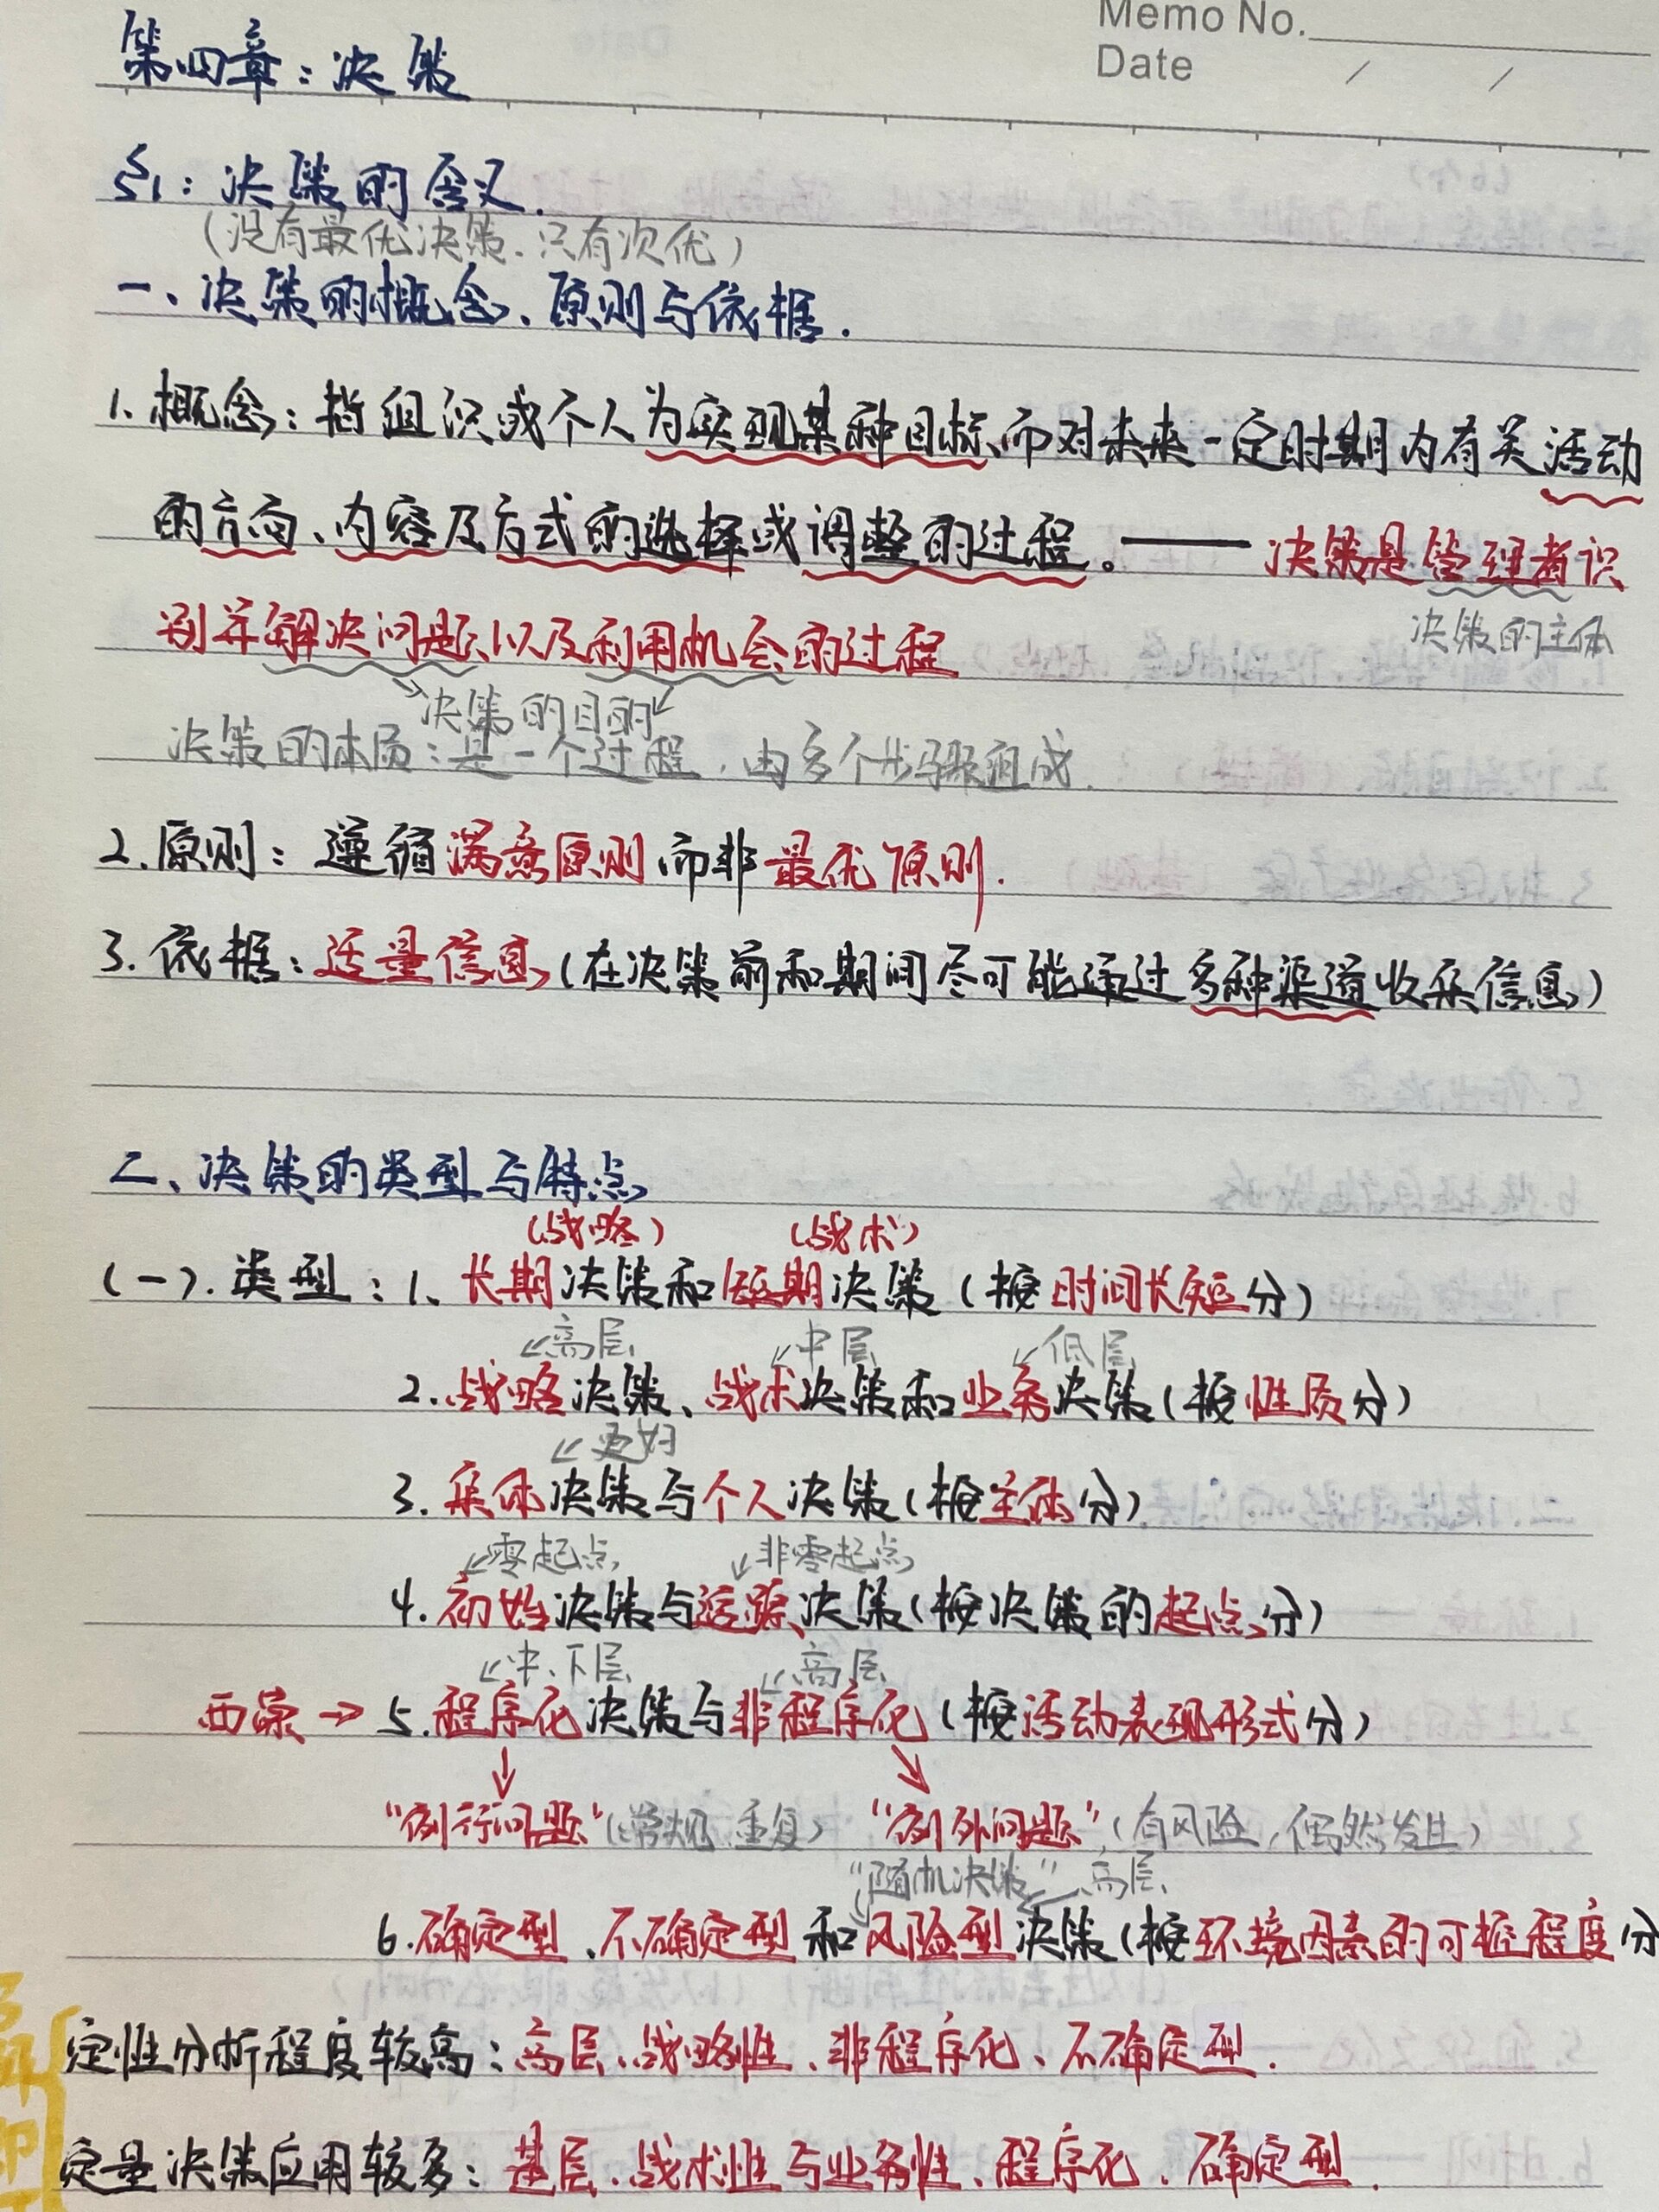 Memo No.
Date / /
第四章：决策
§1：决策的含义.
（没有最优决策.只有次优）
一、决策的概念、原则与依据.
1.概念：指组识或个人为实现某种目标而对未来一定时期内有关活动
的方向、内容及方式的选择或调整的过程。——决策是管理者识
别并解决问题以及利用机会的过程
决策的主体
决策的目的
决策的本质：是一个过程，由多个步骤组成.
2.原则：遵循满意原则而非最优原则.
3.依据：适量信息（在决策前和期间尽可能通过多种渠道收集信息）
二、决策的类型与特点
（战略） （战术）
（一).类型：1、长期决策和短期决策（按时间长短分）
高层 中层 低层
2.战略决策、战术决策和业务决策（按性质分）
更好
3.集体决策与个人决策（按主体分）
零起点 非零起点
4.初始决策与追踪决策（按决策的起点分）
中、下层 高层
西蒙→5.程序化决策与非程序化（按活动表现形式分）
“例行问题”（常规、重复） “例外问题”（有风险，偶然发生）
“随机决策” 高层
6.确定型、不确定型和风险型决策（按环境因素的可控程度分
定性分析程度较高：高层、战略性、非程序化、不确定型.
定量决策应用较多：基层、战术性与业务性、程序化、确定型.